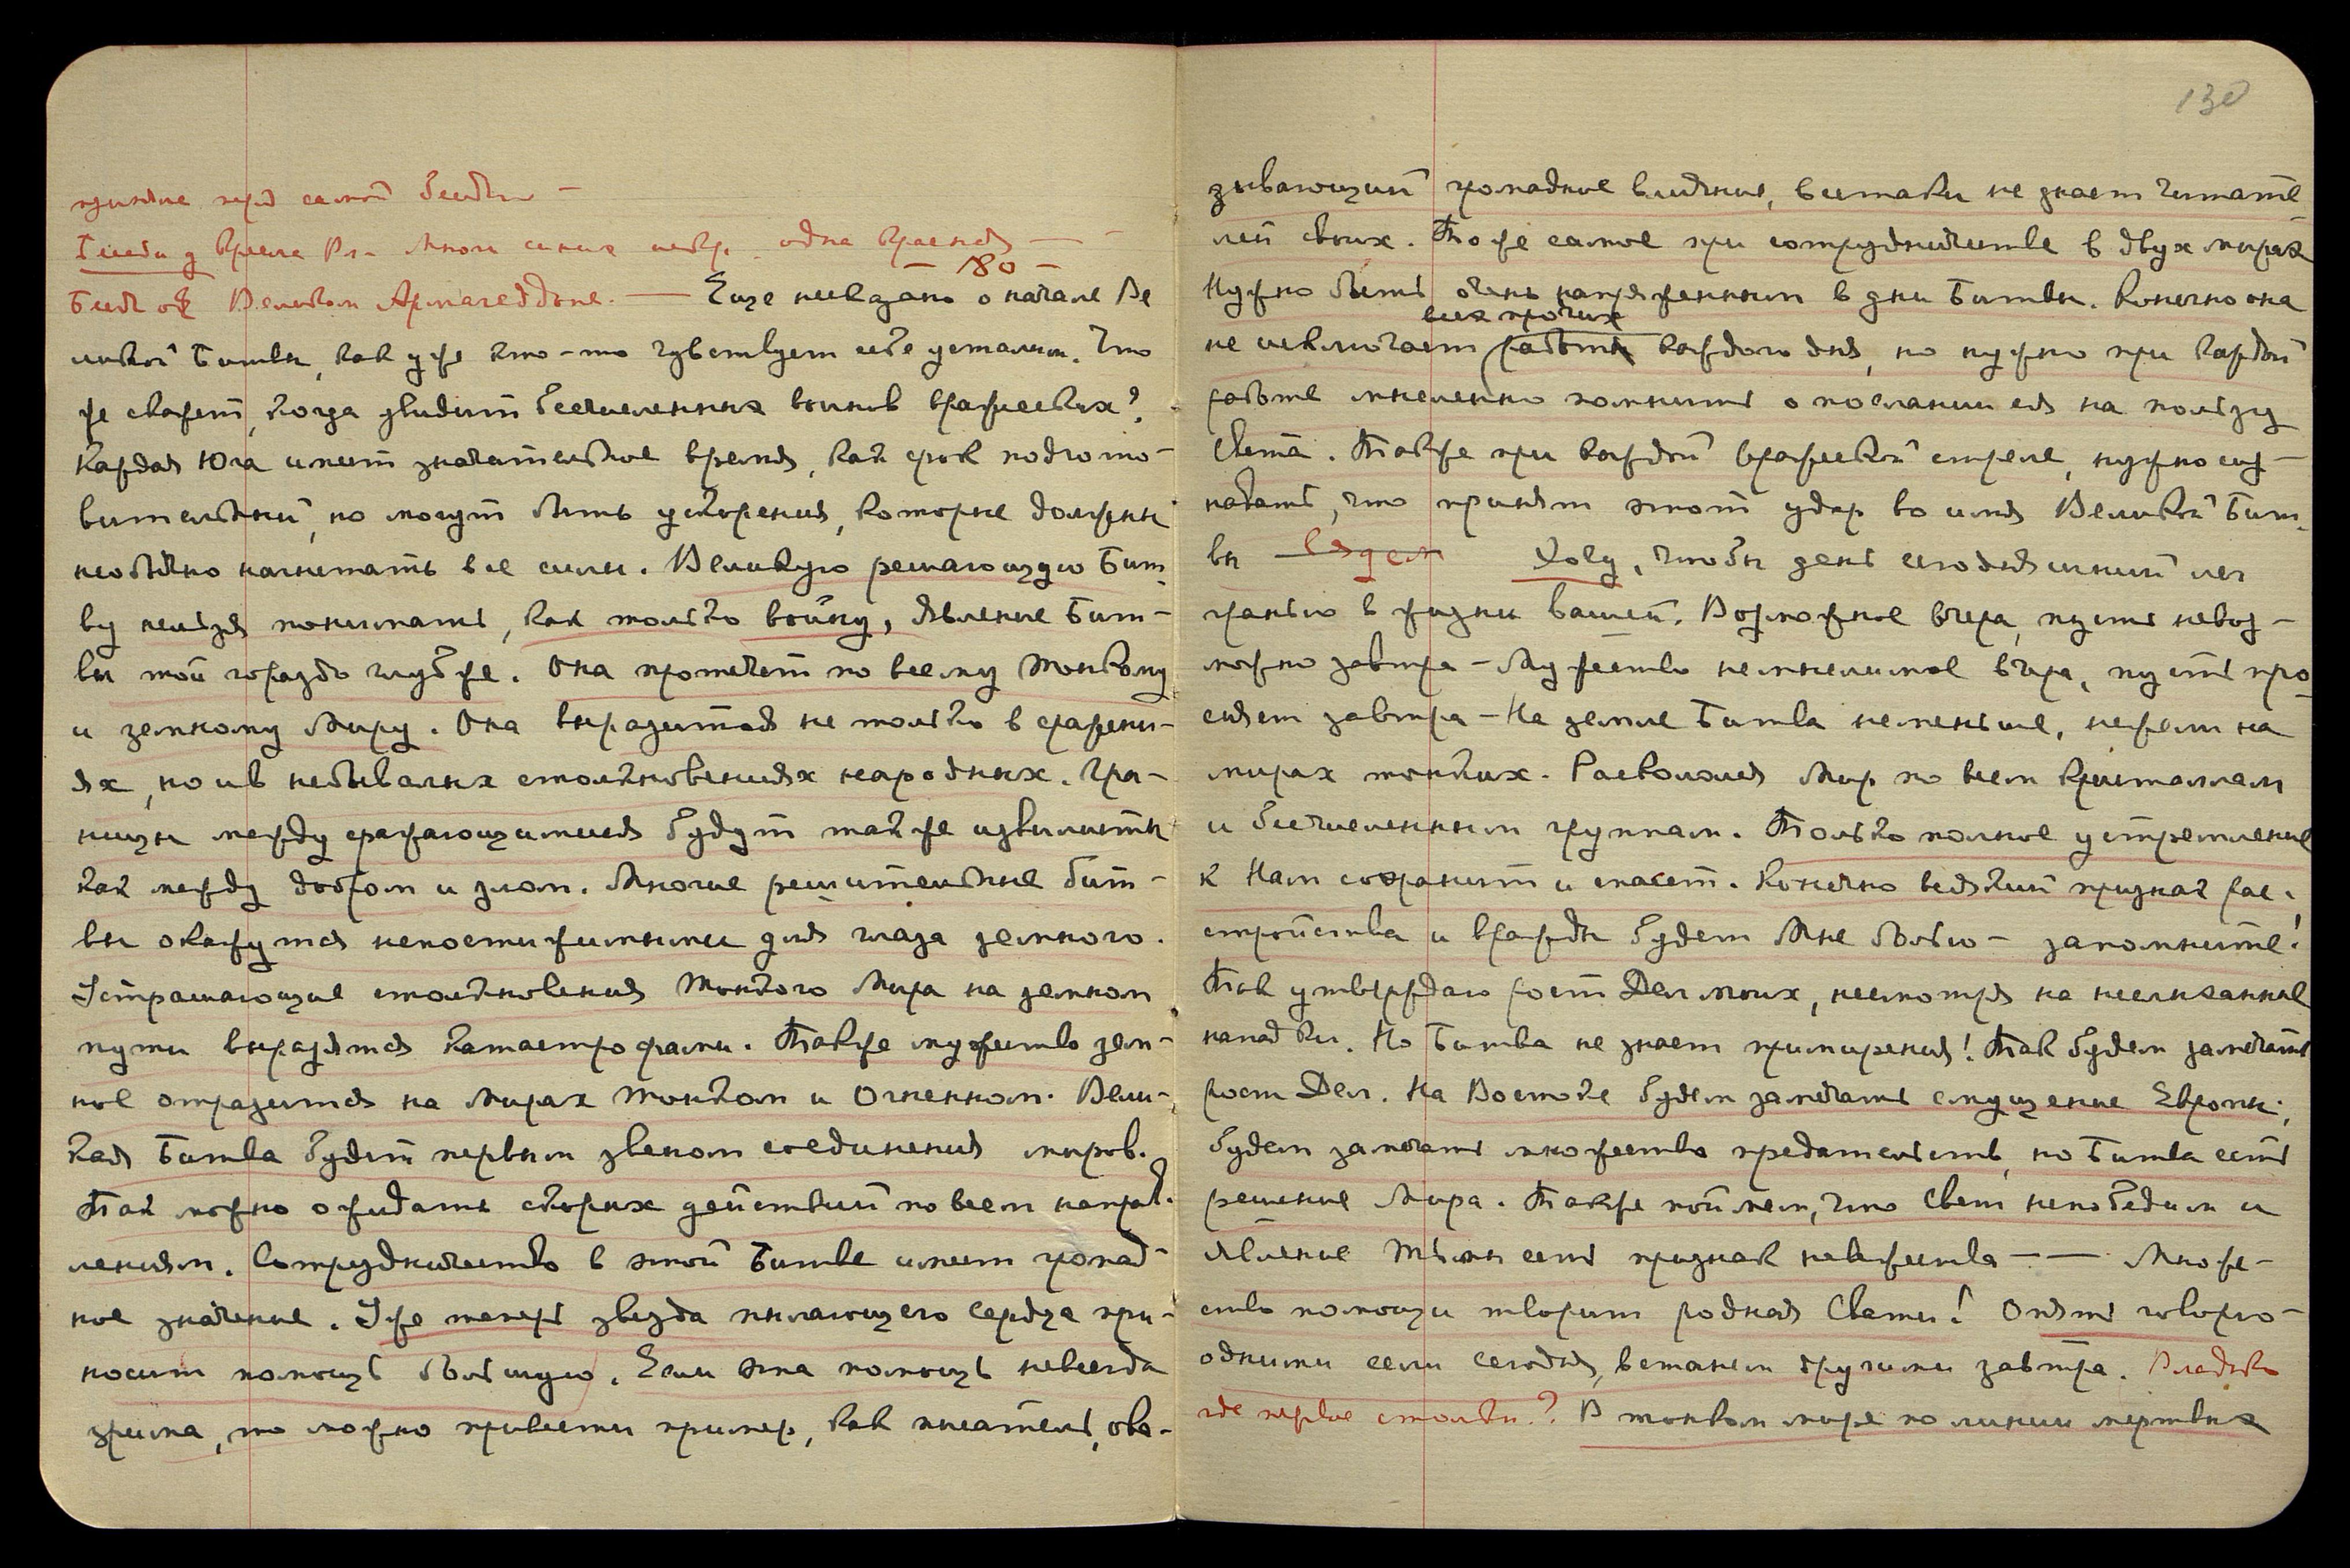 перед самой
время одна красная —
— 180 —
Великом Армагеддоне. — Еще не сказано о начале Ве
ликой Битвы, как уже кто-то чувствует себя усталым. Что
же скажет, когда увидит бесчисленных воинов вражеских?
Каждая Юга имеет значительное время, как срок подгото-
вительный, но могут быть ускорения, которые должны
необычно нагнетать все силы. Великую решающую Бит-
ву нельзя понимать, как только войну, явление Бит-
вы той гораздо глубже. Она протечет по всему Тонкому
и земному Миру. Она выразится не только в сражени-
ях, но и в небывалых столкновениях народных. Гра-
ницы между сражающимися будут также извилисты
как между добром и злом. Многие решительные бит-
вы окажутся непостижимыми для глаза земного.
Устрашающие столкновения Тонкого Мира на земном
пути выразятся катастрофами. Также мужество зем-
ное отразится на Мирах Тонком и Огненном. Вели-
кая Битва будет первым звеном соединения миров.
Так можно ожидать скорых действий по всем направ-
лениям. Сотрудничество в этой Битве имеет громад-
ное значение. Уже теперь звезда пылающего сердца при-
носит помощь большую. Если эта помощь не всегда
зрима, то можно привести пример, как писатель, ока-
130
зывающий громадное влияние, всетаки не знает читате
лей своих. То же самое при сотрудничестве в двух мирах
Нужно быть очень напряженным в дни Битвы. Конечно она
всех прочих
не исключает работы каждого дня, но нужно при каждой
работе мысленно помнить о послании ея на пользу
Света. Также при каждой вражеской стреле, нужно соз-
навать, что принят этот удар во имя Великой Бит-
вы — Хочу, чтобы день сегодняшний лег
гранью в жизни вашей. Возможное вчера, пусть невоз-
можно завтра — Мужество немыслимое вчера, пусть про-
сияет завтра — На земле Битва не меньше, нежели на
мирах тонких. Раскололся Мир по всем кристаллам
и бесчисленным группам. Только полное устремление
к Нам сохранит и спасет. Конечно всякий признак рас-
стройства и вражды будет Мне болью — запомните!
Так утверждаю рост Дел моих, несмотря на неслыханные
нападки. Но Битва не знает примирения! Так будем замечать
рост Дел. На Востоке будем замечать смущение Европы;
будем замечать множество предательств, но Битва есть
решение Мира. Также поймем, что Свет непобедим и
явление Тьмы есть признак невежества — — Множе-
ство помощи творит родная Свати! Опять говорю —
одними сели сегодня, встанем другими завтра. Владыко
где первые столкн.? В тонком мире по линии мертвых